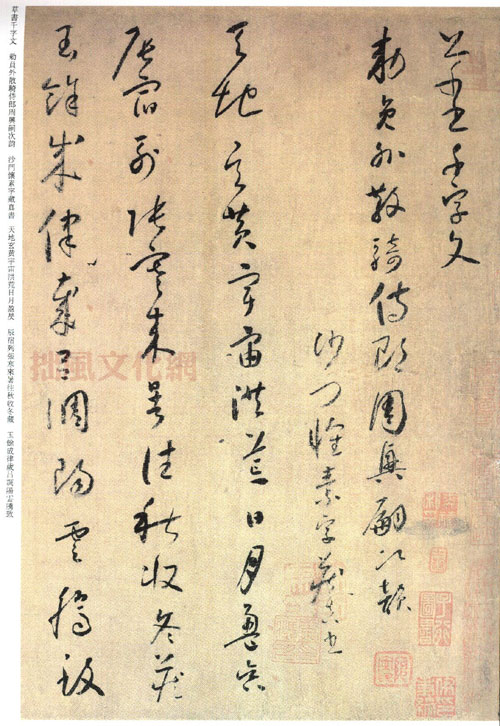 草書千字文
勅員外散騎侍郎周興嗣次韻
沙門懷素字藏真書
天地玄黃宇宙洪荒日月盈昃
辰宿列張寒來暑往秋收冬藏
閏餘成律歲呂調陽雲騰致
草書千字文 勅員外散騎侍郎周興嗣次韻 沙門懷素字藏真書 天地玄黃宇宙洪荒日月盈昃 辰宿列張寒來暑往秋收冬藏 玉餘成律歲呂調陽雲騰致
拙風文化網